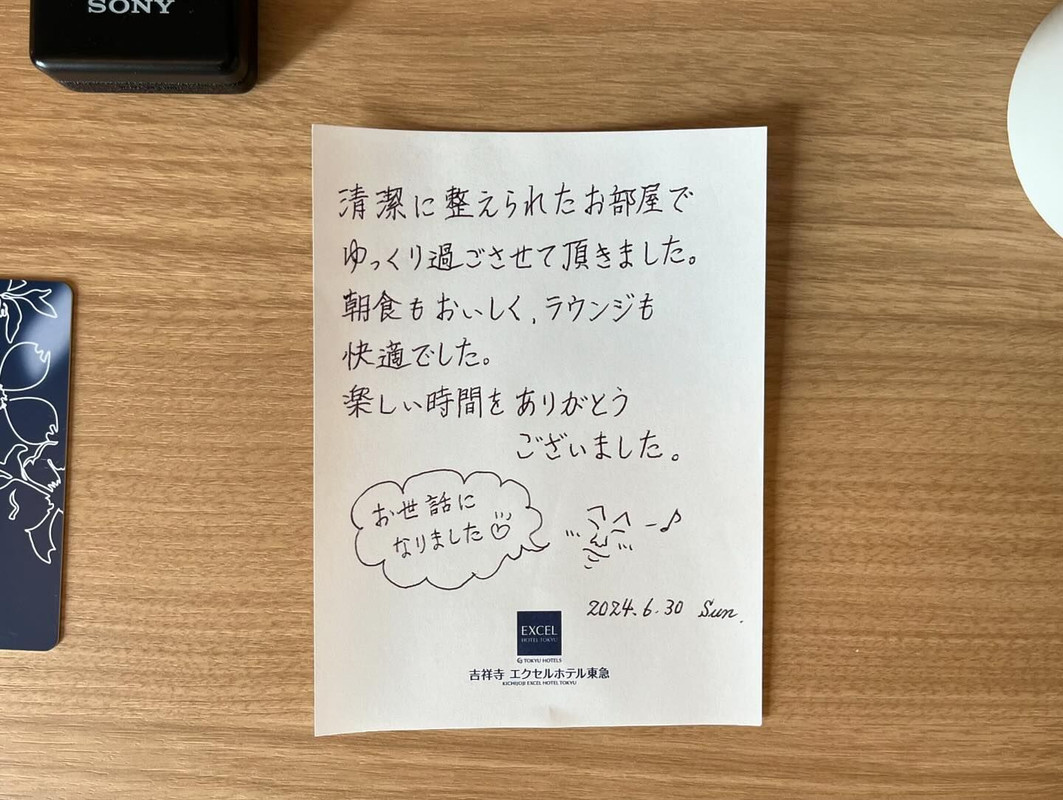 SONY
清潔に整えられたお部屋で
ゆっくり過ごさせて頂きました。
朝食もおいしく、ラウンジも
快適でした。
楽しい時間をありがとう
ございました。
お世話に
なりました♡
2024.6.30 Sun.
EXCEL
HOTEL TOKYU
TOKYU HOTELS
吉祥寺 エクセルホテル東急
KICHIJOJI EXCEL HOTEL TOKYU